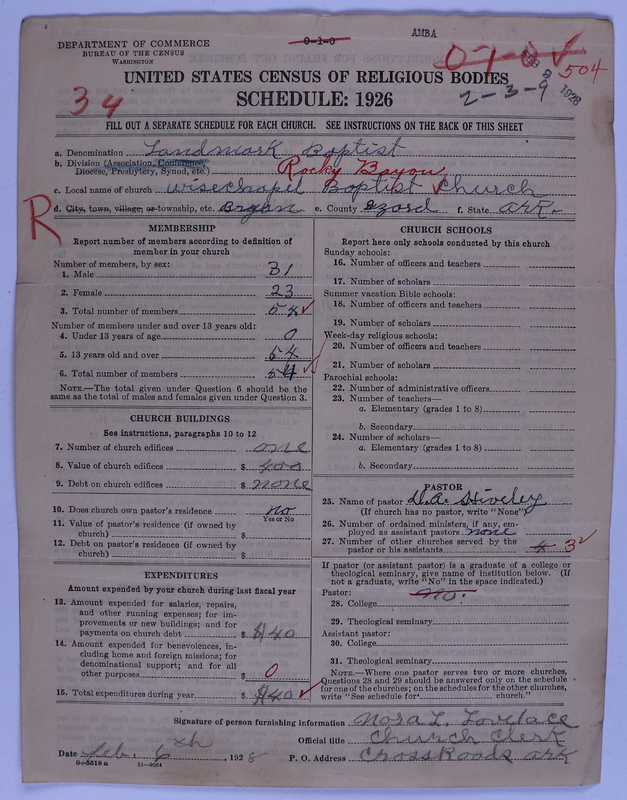 AMBA
DEPARTMENT OF COMMERCE
BUREAU OF THE CENSUS
WASHINGTON
0-1-0
504
2-3-9
1928
34
UNITED STATES CENSUS OF RELIGIOUS BODIES
SCHEDULE: 1926
FILL OUT A SEPARATE SCHEDULE FOR EACH CHURCH. SEE INSTRUCTIONS ON THE BACK OF THIS SHEET
a. Denomination Landmark Baptist
b. Division (Association, Conference, Diocese, Presbytery, Synod, etc.) Rocky Bayou
c. Local name of church Wisechapel Baptist Church
R
d. City, town, village, or township, etc. Bryan e. County Izard f. State Ark.
MEMBERSHIP
Report number of members according to definition of
member in your church
Number of members, by sex:
1. Male 31
2. Female 23
3. Total number of members 54
Number of members under and over 13 years old:
4. Under 13 years of age 0
5. 13 years old and over 54
6. Total number of members 54
NOTE.—The total given under Question 6 should be
same as the total of males and females given under Question 3.
CHURCH BUILDINGS
See instructions, paragraphs 10 to 12
7. Number of church edifices one
8. Value of church edifices $ 400
9. Debt on church edifices $ none
10. Does church own pastor's residence no
Yes or No
11. Value of pastor's residence (if owned by
church) $
12. Debt on pastor's residence (if owned by
church) $
EXPENDITURES
Amount expended by your church during last fiscal year
13. Amount expended for salaries, repairs,
and other running expenses; for im-
provements or new buildings; and for
payments on church debt $ $40
14. Amount expended for benevolences, in-
cluding home and foreign missions; for
denominational support; and for all
other purposes $ 0
15. Total expenditures during year $ $40
CHURCH SCHOOLS
Report here only schools conducted by this church
Sunday schools:
16. Number of officers and teachers
17. Number of scholars
Summer vacation Bible schools:
18. Number of officers and teachers
19. Number of scholars
Week-day religious schools:
20. Number of officers and teachers
21. Number of scholars
Parochial schools:
22. Number of administrative officers
23. Number of teachers—
a. Elementary (grades 1 to 8)
b. Secondary
24. Number of scholars—
a. Elementary (grades 1 to 8)
b. Secondary
PASTOR
25. Name of pastor D.A. Hiveley
(If church has no pastor, write "None")
26. Number of ordained ministers, if any, em-
ployed as assistant pastors none
27. Number of other churches served by the
pastor or his assistants 4 3
If pastor (or assistant pastor) is a graduate of a college or
theological seminary, give name of institution below. (If
not a graduate, write "No" in the space indicated.)
Pastor: no.
28. College
29. Theological seminary
Assistant pastor:
30. College
31. Theological seminary
NOTE.—Where one pastor serves two or more churches,
Questions 28 and 29 should be answered only on the schedule
for one of the churches; on the schedules for the other churches,
write "See schedule for church."
Signature of person furnishing information Nora L. Lovelace
Official title Church Clerk
Date Feb. 6th, 1928 P. O. Address CrossRoads Ark
8-5518a 11-9054